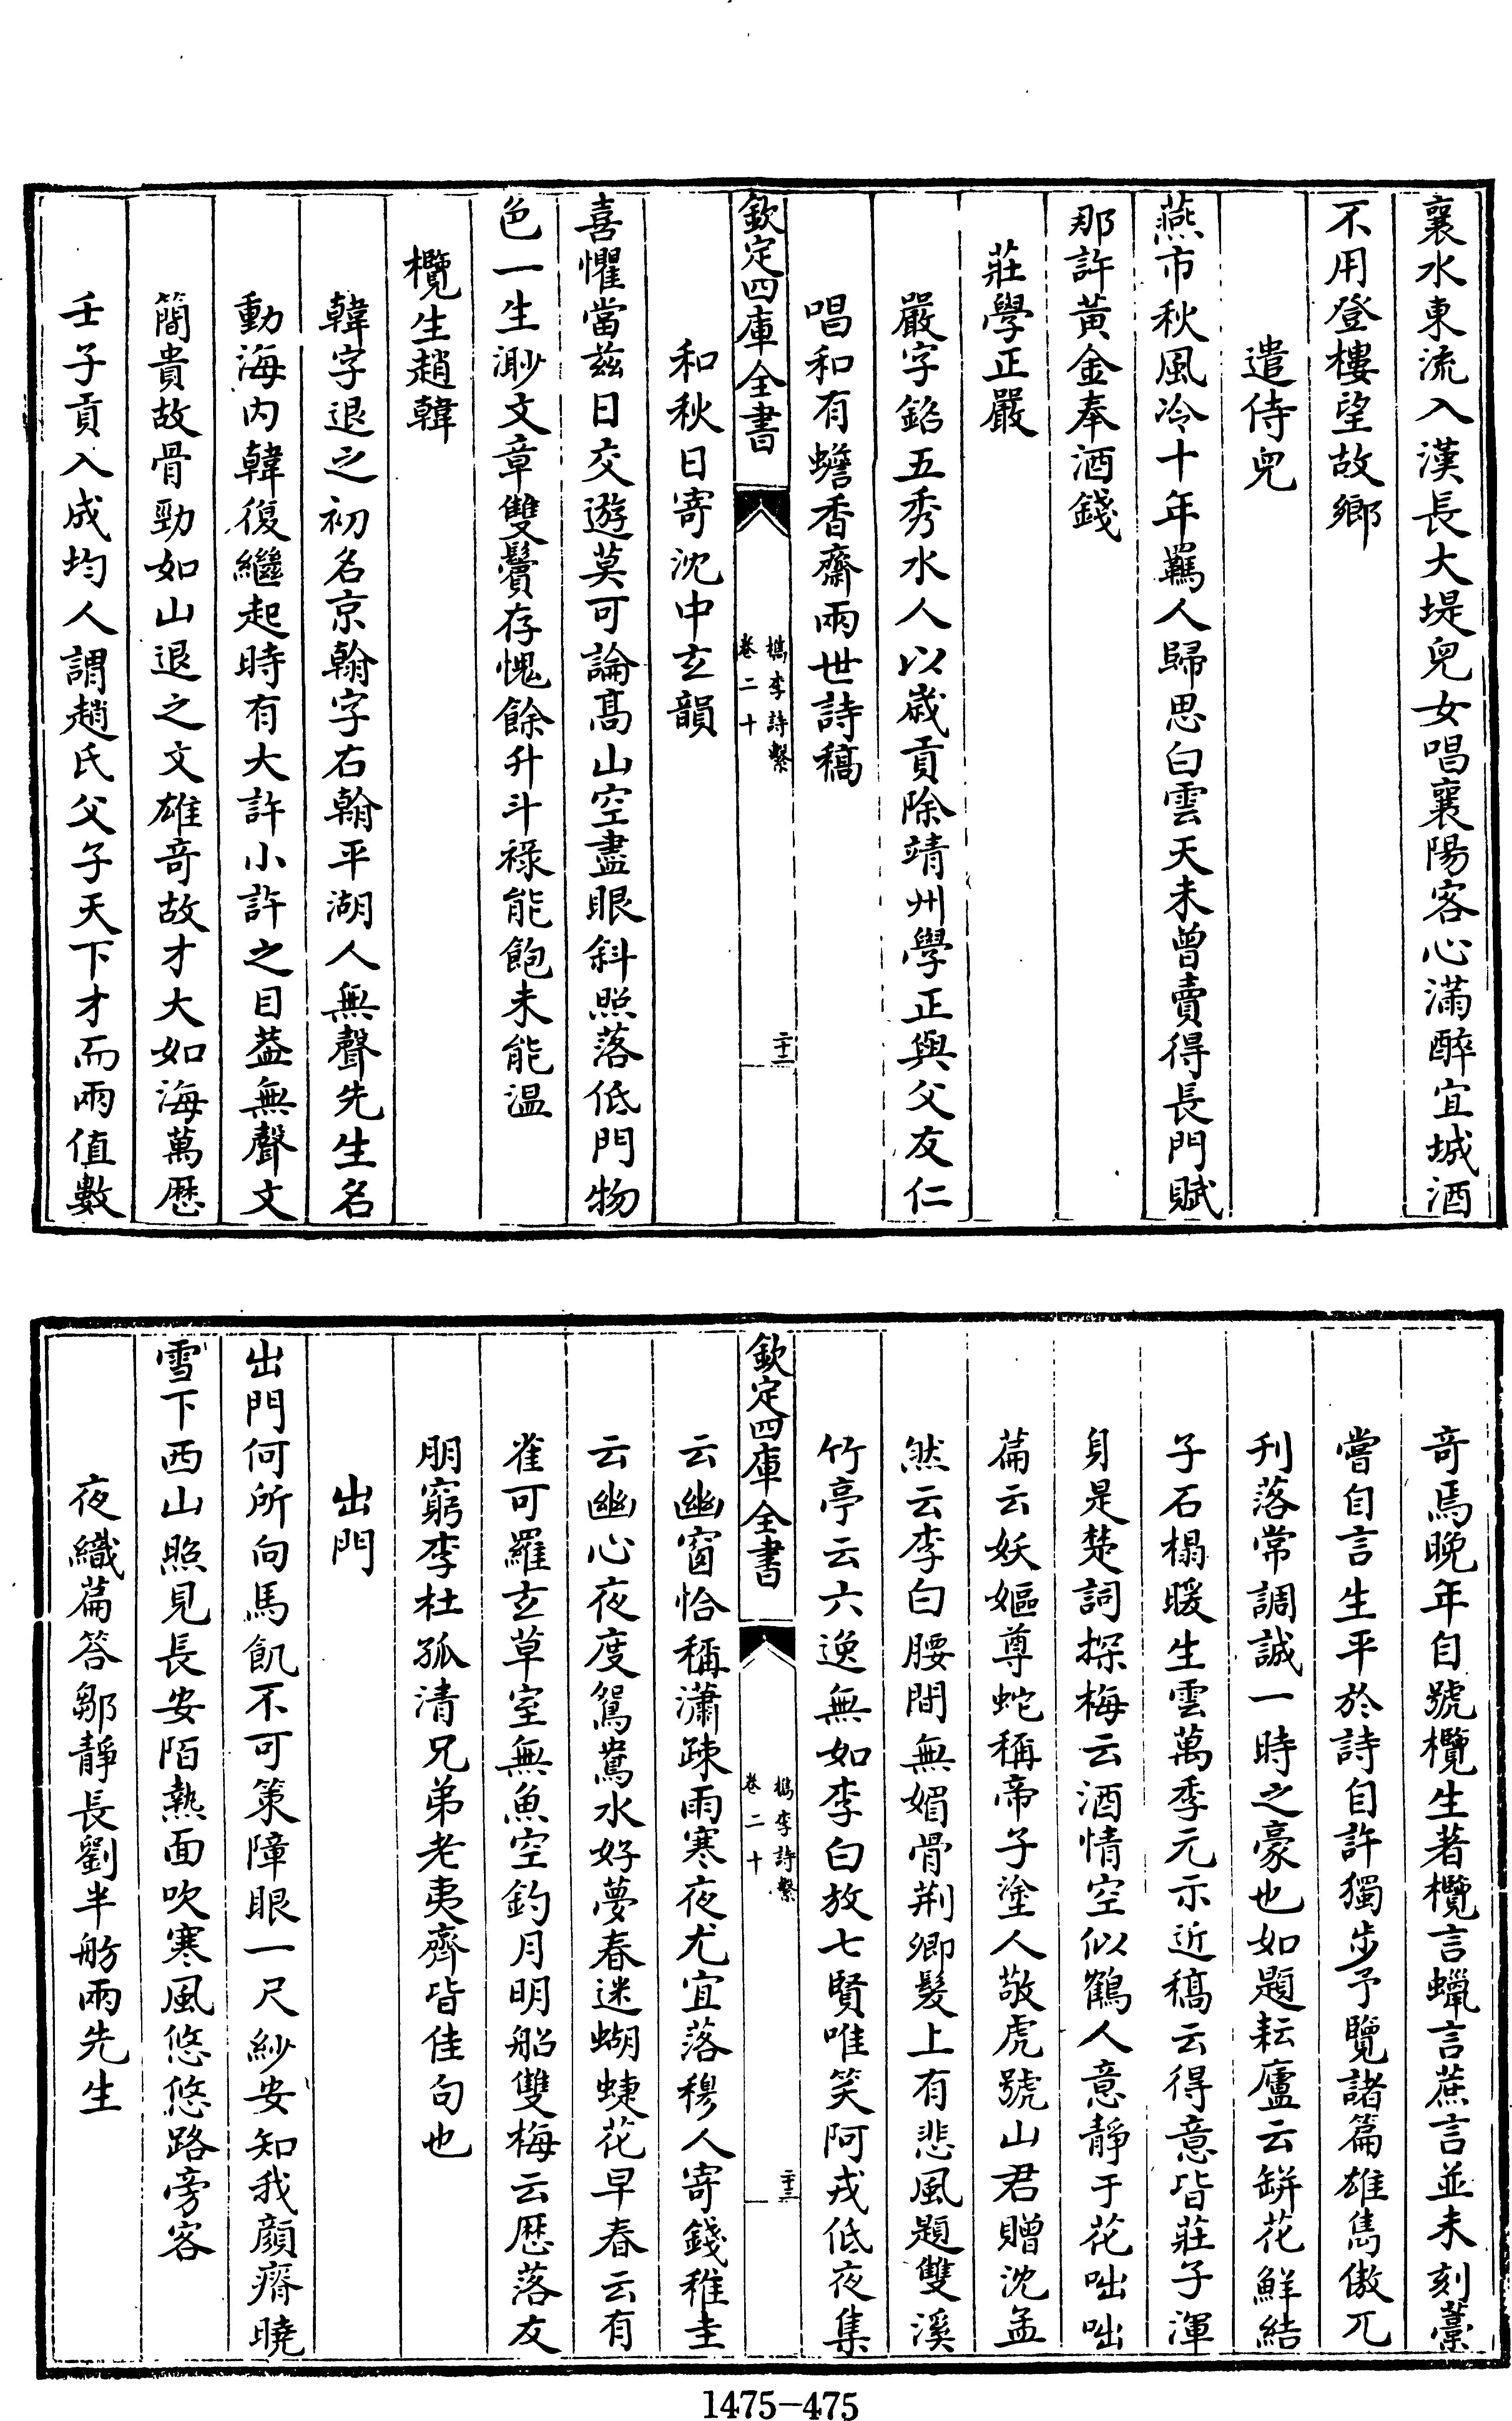 襄水東流入漢長大堤兒女唱襄陽客心滿醉宜城酒
不用登樓望故鄉
遣侍兒
燕市秋風冷十年羈人歸思白雲天未曾賣得長門賦
那許黃金奉酒錢
莊學正嚴
嚴字銘五秀水人以歲貢除靖州學正與父友仁
唱和有蟾香齋兩世詩稿
欽定四庫全書
檇李詩繫
卷二十
二十二
和秋日寄沈中玄韻
喜懼當兹日交遊莫可論髙山空盡眼斜照落低門物
色一生渺文章雙鬢存愧餘升斗禄能飽未能温
欖生趙韓
韓字退之初名京翰字右翰平湖人無聲先生名
動海内韓復繼起時有大許小許之目葢無聲文
簡貴故骨勁如山退之文雄竒故才大如海萬厯
壬子貢入成均人謂趙氏父子天下才而兩值數
竒焉晩年自號欖生著欖言蠟言蔗言並未刻藁
嘗自言生平於詩自許獨步予覽諸篇雄雋傲兀
刋落常調誠一時之豪也如題耘廬云缾花鮮結
子石榻暖生雲萬季元示近稿云得意皆莊子渾
身是楚詞探梅云酒情空似鶴人意靜于花咄咄
篇云妖嫗尊蛇稱帝子塗人敬虎號山君贈沈孟
然云李白腰間無媚骨荆卿髮上有悲風題雙溪
竹亭云六逸無如李白放七賢唯笑阿戎低夜集
欽定四庫全書
檇李詩繫
卷二十
二十三
云幽窗恰稱瀟疎雨寒夜尤宜落穆人寄錢稚圭
云幽心夜度鴛鴦水好夢春迷蝴蜨花早春云有
雀可羅玄草室無魚空釣月明船雙梅云厯落友
朋窮李杜孤清兄弟老夷齊皆佳句也
出門
出門何所向馬飢不可策障眼一尺紗安知我顔瘠曉
雪下西山照見長安陌熱面吹寒風悠悠路旁客
夜織篇答鄒靜長劉半舫兩先生
1475-475